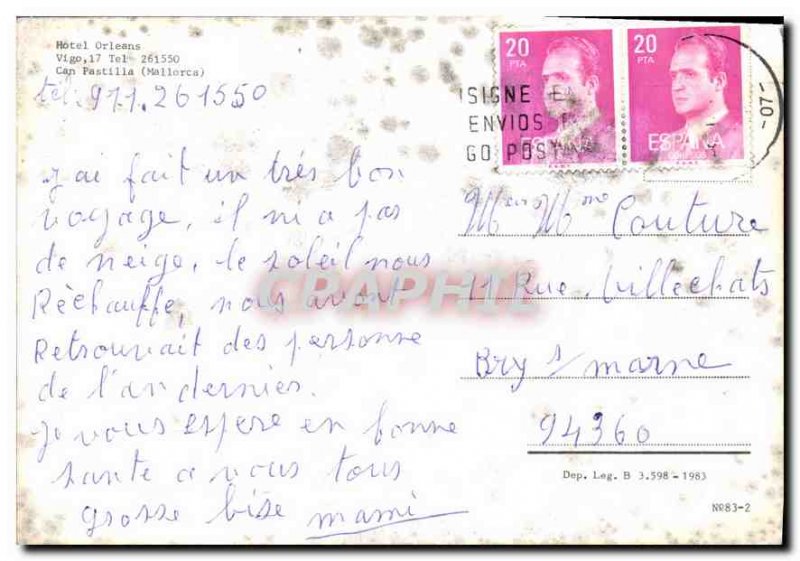 Hotel Orleans
Vigo,17 Tel 261550
Can Pastilla (Mallorca)
tel. 911.261550
j'ai fait un très bon
voyage, il ni a pas
de neige, le soleil nous
Rèchauffe, nous avont
Retrouvait des personne
de l'an dernier.
je vous espere en bonne
sante a vous tous
grosse bise mami
20
PTA
ESPAÑA
20
PTA
ESPAÑA
CORREOS
SIGNE
ENVIOS
GO POST
-07-
Mr Mme Couture
Rue Villechats
Bry s/ marne
94360
Dep. Leg. B 3.598-1983
Nº83-2
CPAPHIL